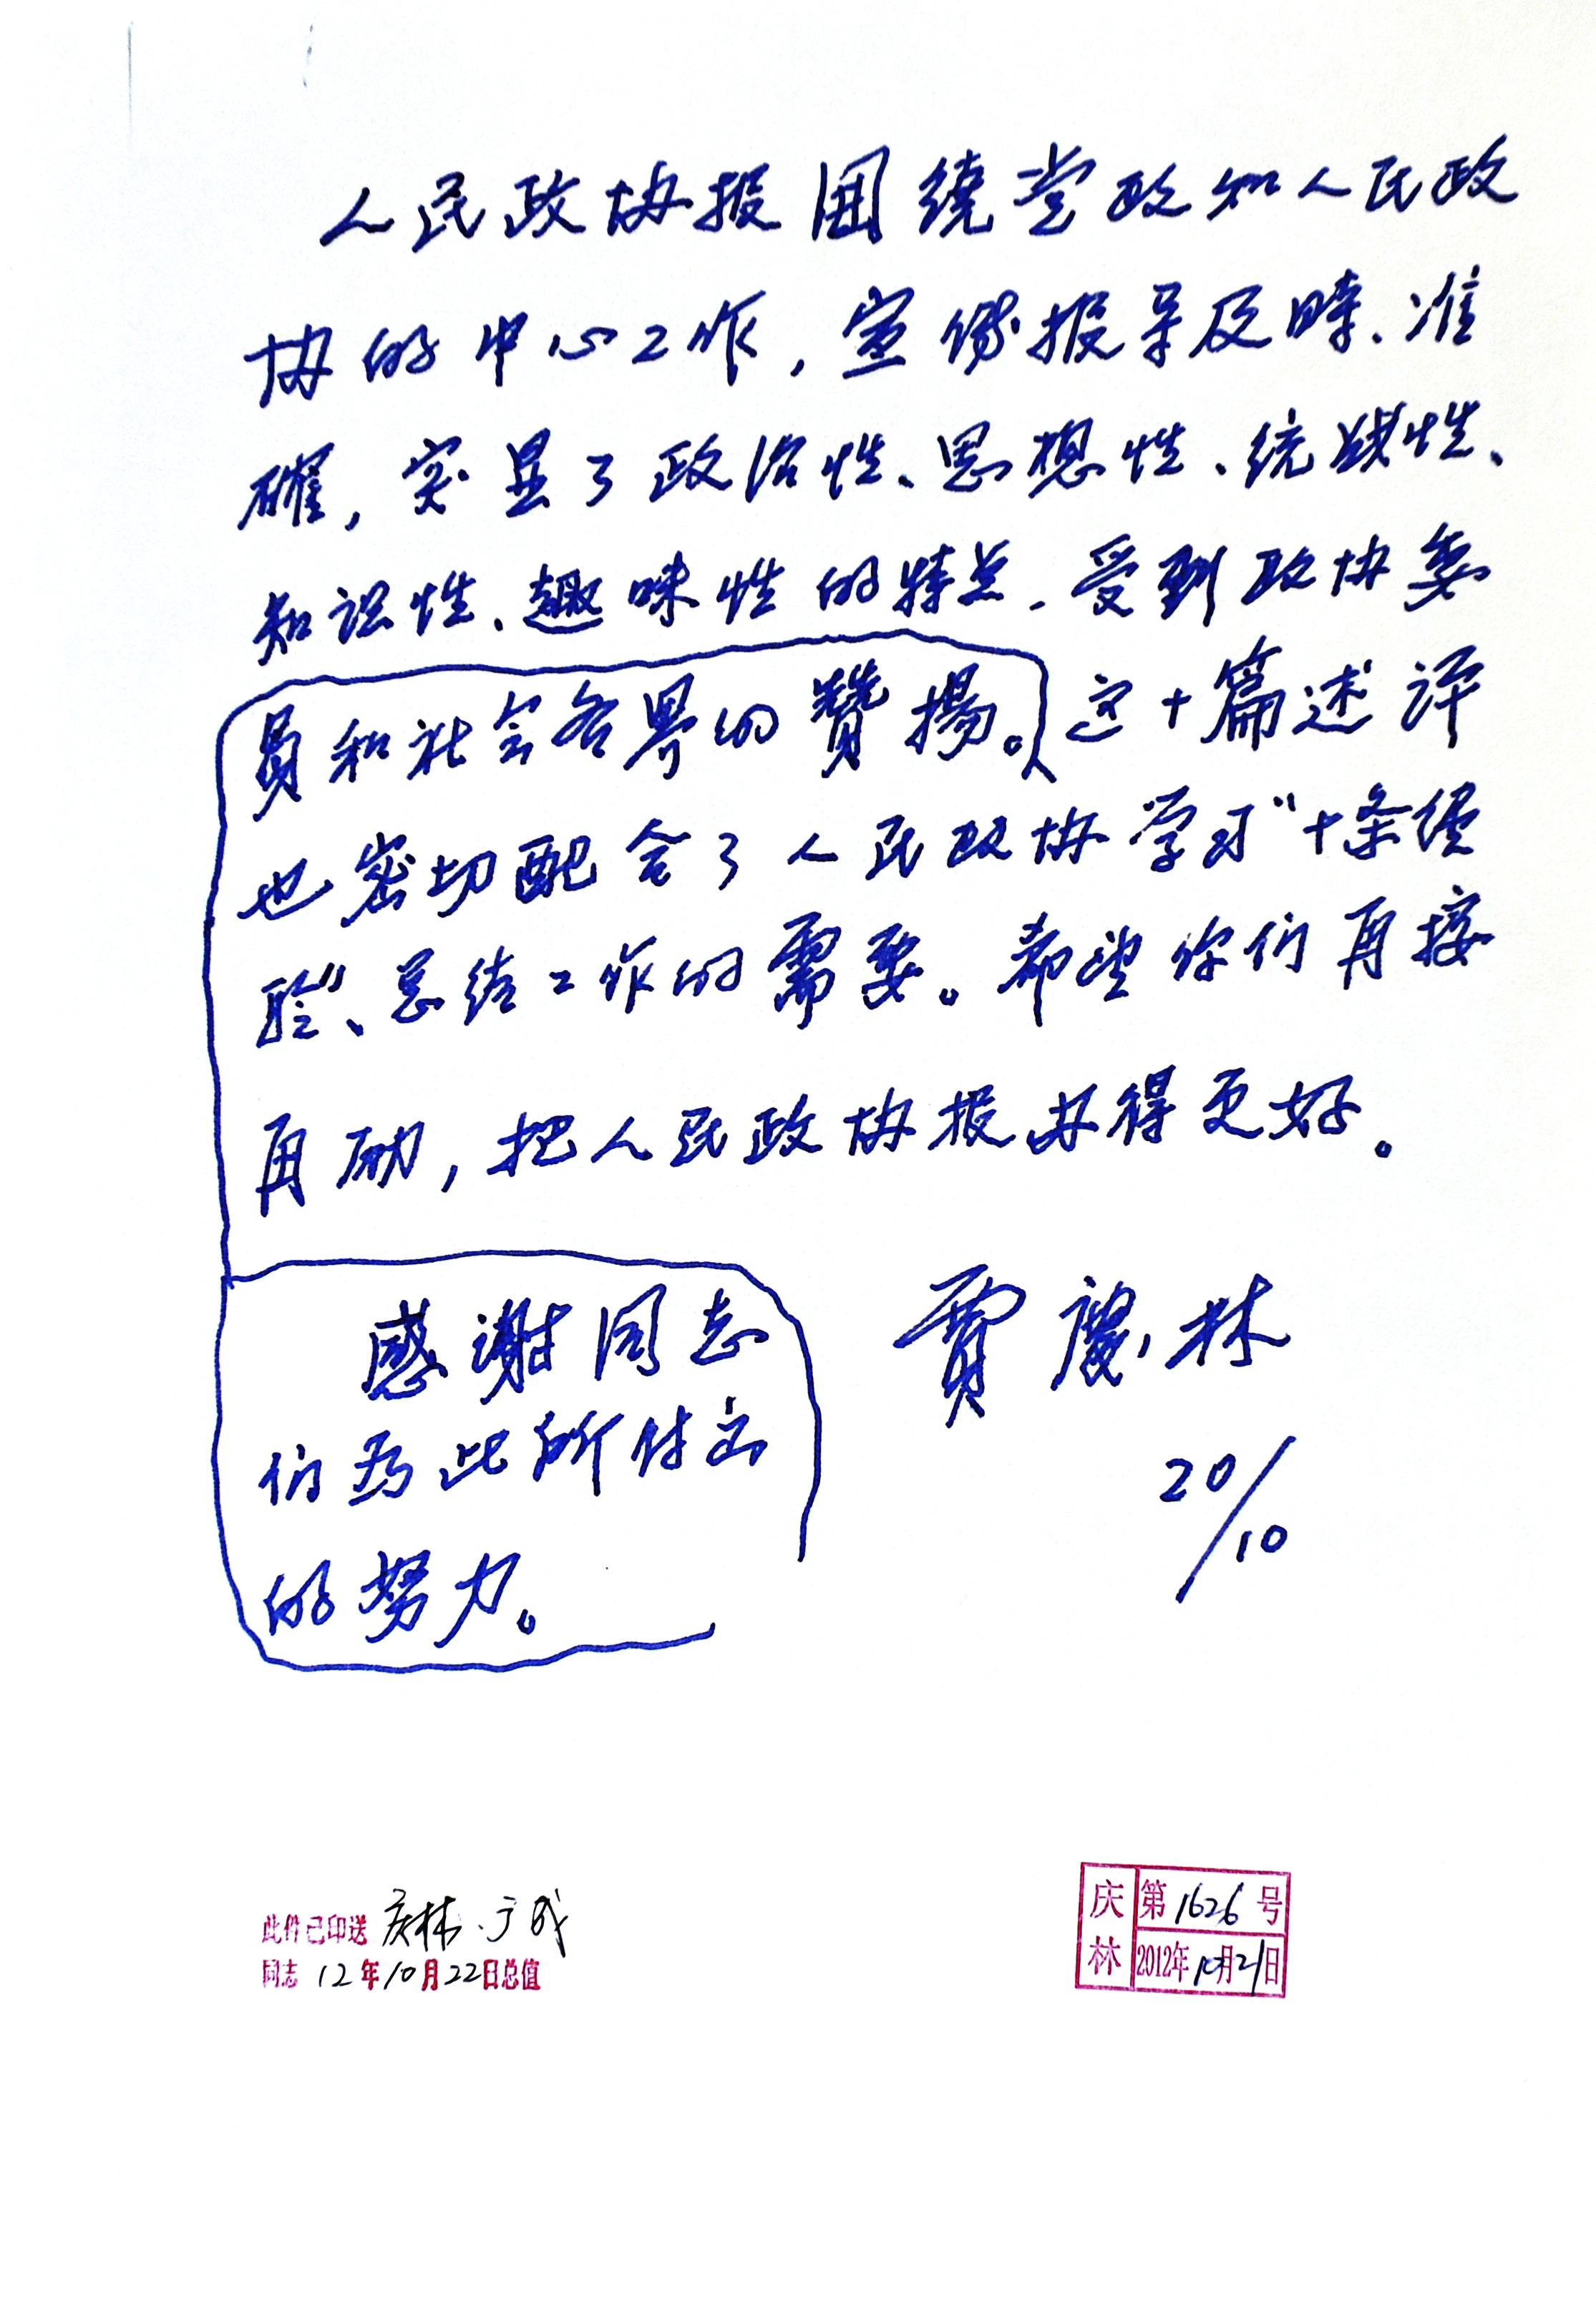 人民政协报围绕党政和人民政
协的中心工作，宣传报导及時、准
確，突显了政治性、思想性、统战性、
知识性、趣味性的特点，受到政协委
员和社会各界的贊揚。这十篇述评
也密切配合了人民政协学习“十条经
验”、总结工作的需要。希望你们再接
再励，把人民政协报办得更好。
感谢同志
们为此所付出
的努力。
賈慶林
20/10
此件已印送 庆林、
同志 12年10月22日总值
庆林 第1626号
2012年10月21日